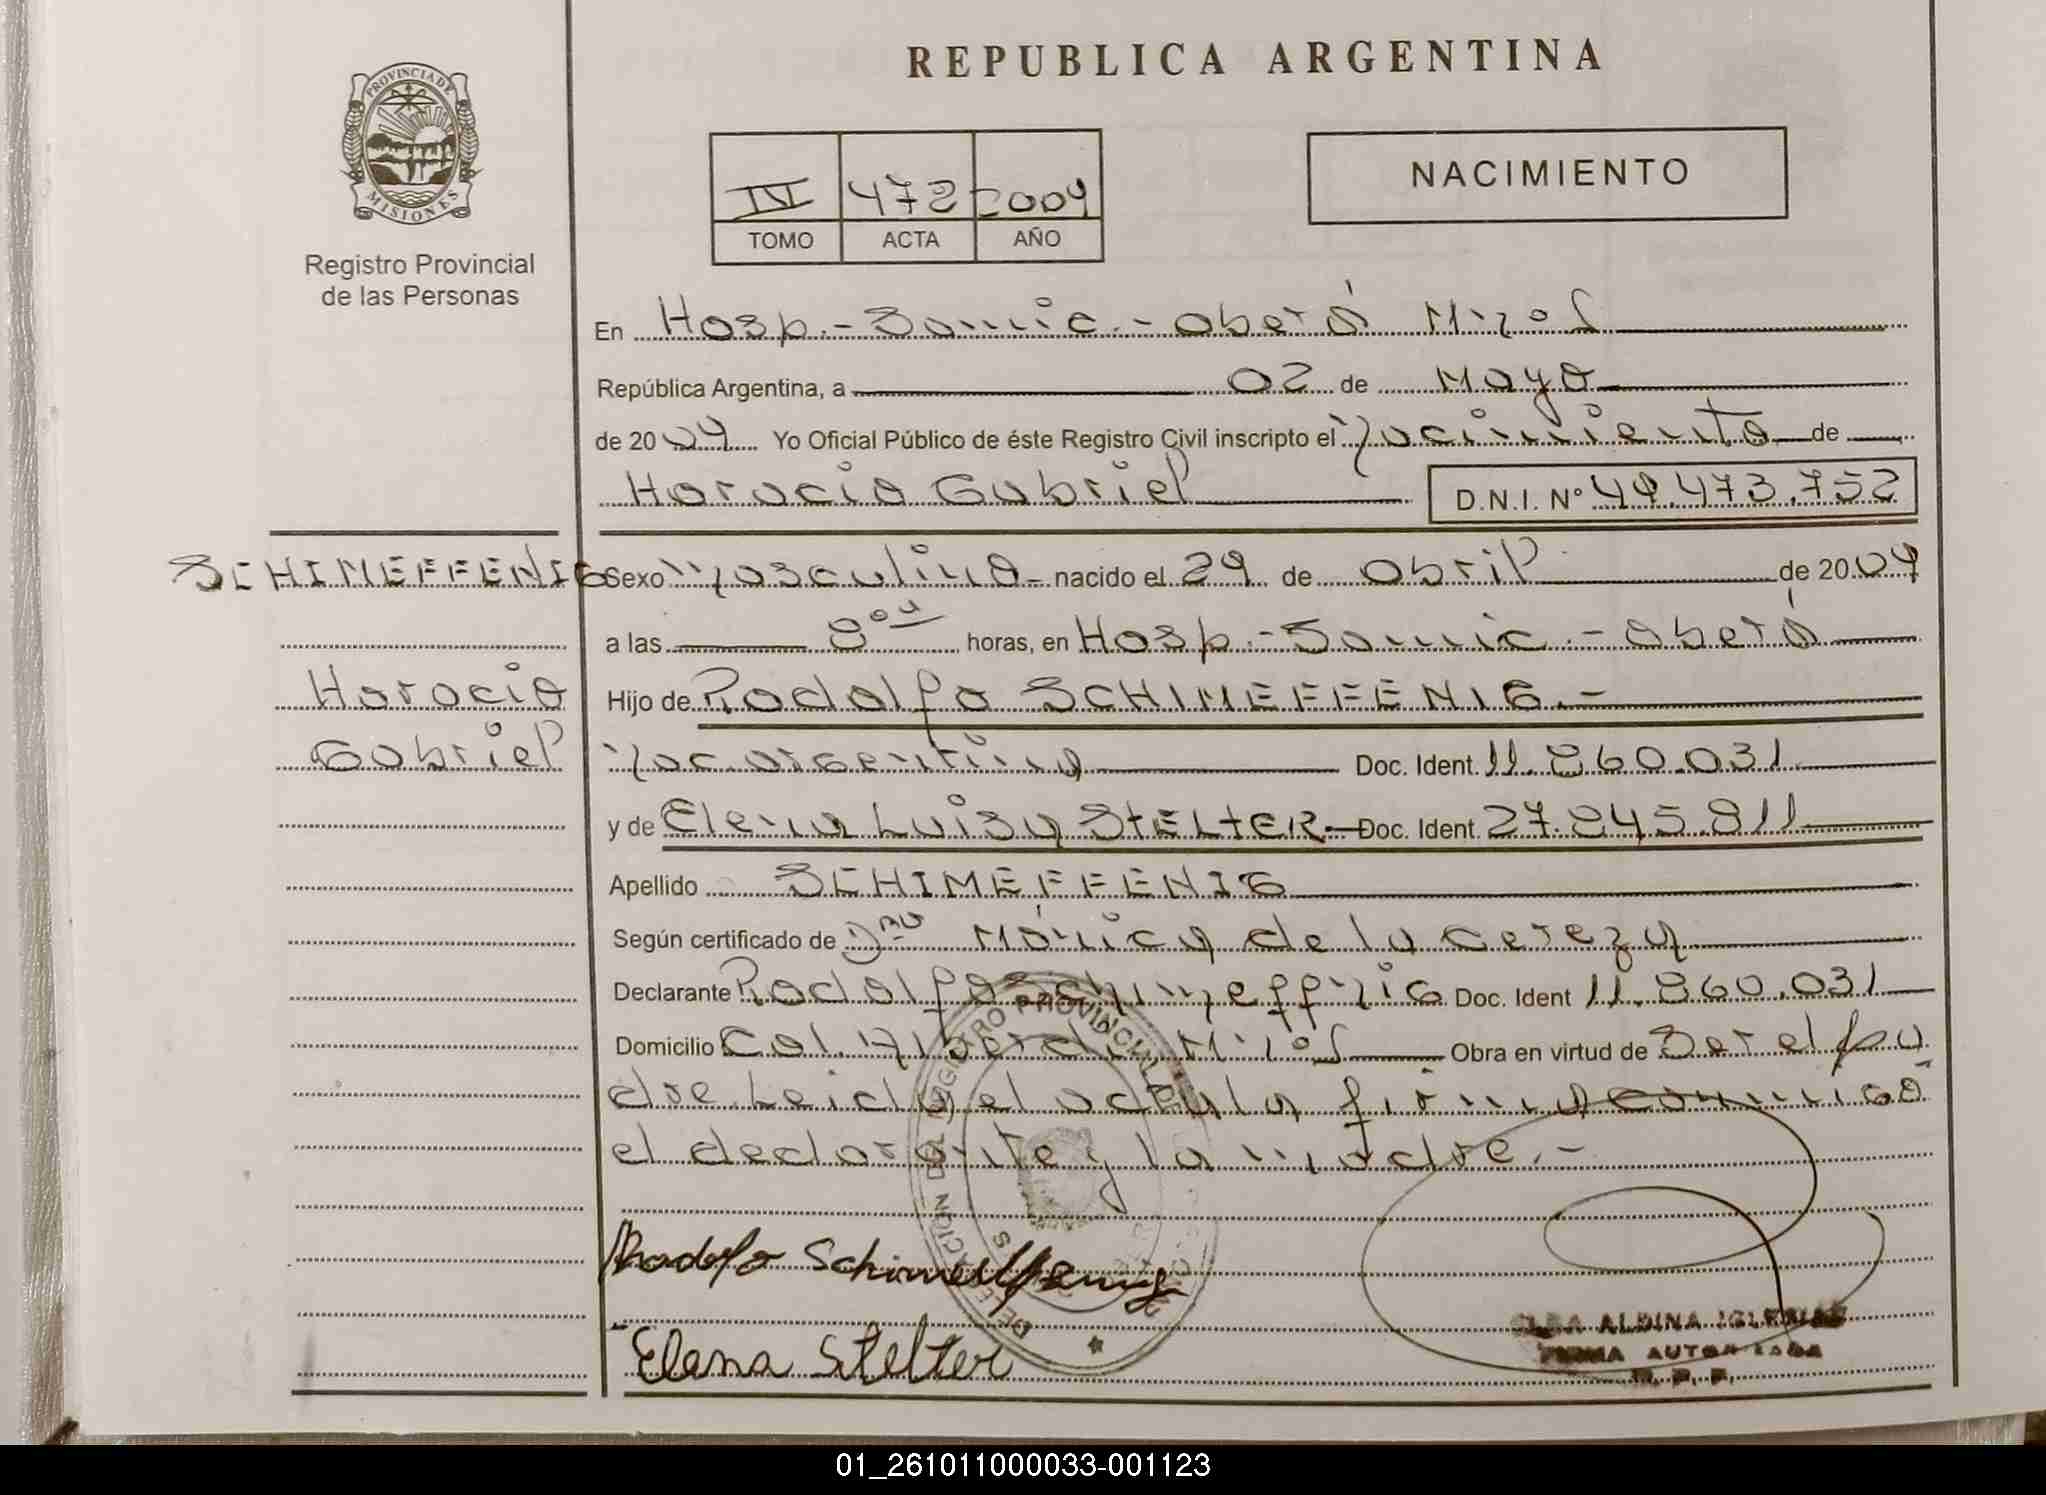 REPUBLICA ARGENTINA
PROVINCIA DE
MISIONES
Registro Provincial
de las Personas
IV 472 2004
TOMO ACTA AÑO
NACIMIENTO
En Hosp.- Samic.- Oberá Mnes
República Argentina, a 02 de Mayo
de 2004 Yo Oficial Público de éste Registro Civil inscripto el nacimiento de
Horacio Gabriel D.N.I. N° 44.473.752
SCHIMEFFENIG
Horacio
Gabriel
Sexo masculino nacido el 29 de abril de 2004
a las 8 horas, en Hosp.- Samic.- Oberá
Hijo de Rodolfo SCHIMEFFENIG.-
nac. argentina Doc. Ident. 11.860.031
y de Elena Luisa STELTER.- Doc. Ident. 27.245.811
Apellido SCHIMEFFENIG
Según certificado de Dra Mónica de la Cereza
Declarante Rodolfo Schimeffnig Doc. Ident 11.860.031
Domicilio Col. Alberdi Mnes Obra en virtud de Ser el pa
dre. Leida el acta la firma conmigo
el declarante y la madre.-
Rodolfo Schimelfenig
Elena Stelter
DELEGACION DEL REGISTRO PROVINCIAL
ELBA ALDINA IGLESIAS
FIRMA AUTORIZADA
R. P. P.
01_261011000033-001123